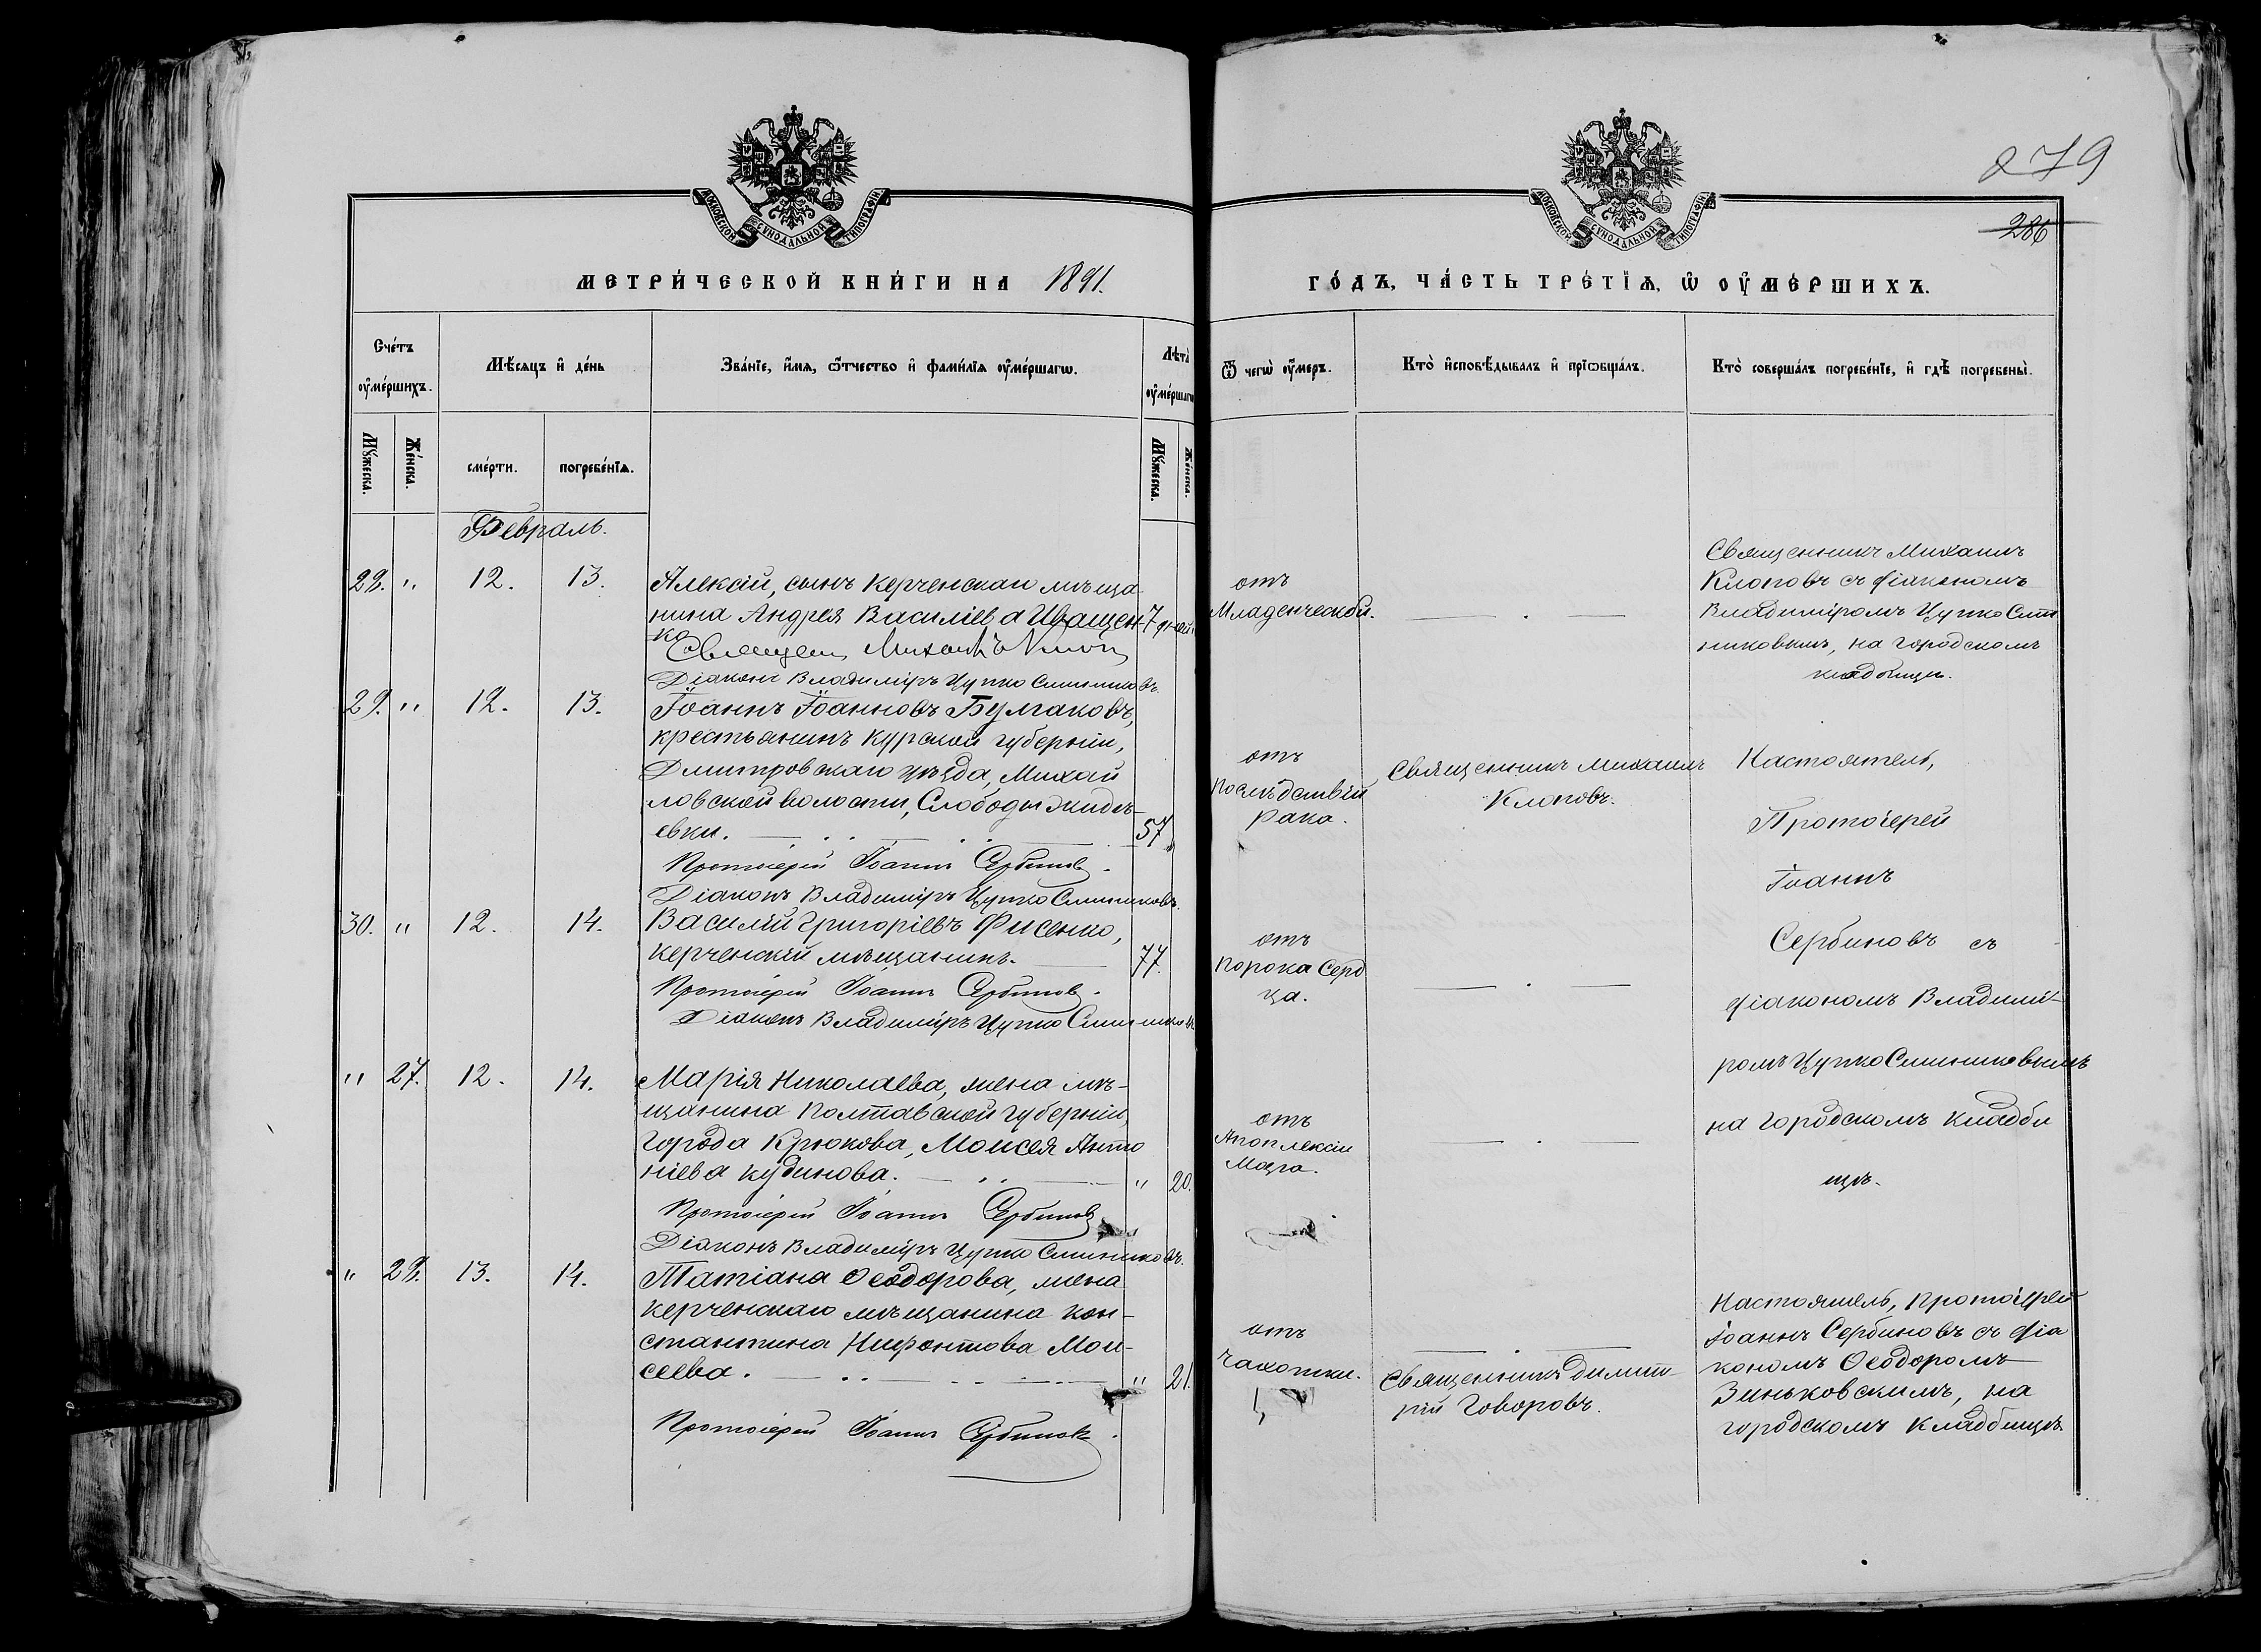 279
286
МОСКОВСКОЙ СѴНОДАЛЬНОЙ ТИПОГРАФІИ
МОСКОВСКОЙ СѴНОДАЛЬНОЙ ТИПОГРАФІИ
МЕТРИ́ЧЕСКОЙ КНИ́ГИ НА 1891.
ГО́ДЪ, ЧА́СТЬ ТРЕ́ТЇѦ, Ѡ҆ ОУ҆МЕ́РШИХЪ.
Сче́тъ оу҆ме́ршихъ.
Мѣ́сяцъ и҆ де́нь
Зва́нїе, и҆́мя, ѻ҆́тчество и҆ фами́лїя оу҆ме́ршагѡ.
Лѣта̀ оу҆ме́ршагѡ
Ѿ чегѡ̀ оу҆́меръ.
Кто̀ и҆сповѣ́дывалъ и҆ прїѡбща́лъ.
Кто̀ соверша́лъ погребе́нїе, и҆ гдѣ̀ погребены̀.
Мꙋ́жеска.
Же́нска.
сме́рти.
погребе́нїѧ.
Мꙋ́жеска.
Же́нска.
Февраль.
28. " 12. 13.
Алексій, сынъ Керченскаго мѣща
нина Андрея Василіева Иващен-
ко
7 дней
Священ. Михаилъ Клопов
Діаконъ Владиміръ Цупко Ситниковъ.
отъ
Младенческой.
Священникъ Михаилъ
Клоповъ съ діакономъ
Владиміромъ Цупко Сит
никовымъ, на городскомъ
кладбищѣ.
29. " 12. 13.
Іоаннъ Іоанновъ Булгаковъ,
крестьянинъ Курской губерніи,
Дмитровскаго уѣзда, Михай
ловской волости, Слободы Жидѣ-
евки.
57
Протоіерей Іоаннъ Сербиновъ.
Діаконъ Владиміръ Цупко Ситниковъ.
отъ
Послѣдствій
рака.
Священникъ Михаилъ
Клоповъ.
Настоятель,
Протоіерей
Іоаннъ
Сербиновъ съ
діакономъ Владимі-
ромъ Цупко Ситниковымъ
на городскомъ кладби
щѣ.
30. " 12. 14.
Василій Григоріевъ Фисенко,
керченскій мѣщанинъ.
77.
Протоіерей Іоаннъ Сербиновъ.
Діаконъ Владиміръ Цупко Ситниковъ
отъ
Порока Серд
ца.
" 27. 12. 14.
Марія Николаева, жена мѣ-
щанина Полтавской губерніи,
города Крюкова, Моисея Анто
ніева Кудинова.
" 20.
Протоіерей Іоаннъ Сербиновъ
Діаконъ Владиміръ Цупко Ситниковъ.
отъ
Апоплексіи
Мозга.
" 28. 13. 14.
Татіана Ѳеодорова, жена
керченскаго мѣщанина Кон-
стантина Нифонтова Мои-
сеева.
" 21.
Протоіерей Іоаннъ Сербиновъ.
отъ
Чахотки.
Священникъ Димит-
рій Говоровъ.
Настоятель, Протоіерей
Іоаннъ Сербиновъ съ діа
кономъ Ѳеодоромъ
Зиньковскимъ, на
городскомъ кладбищѣ.